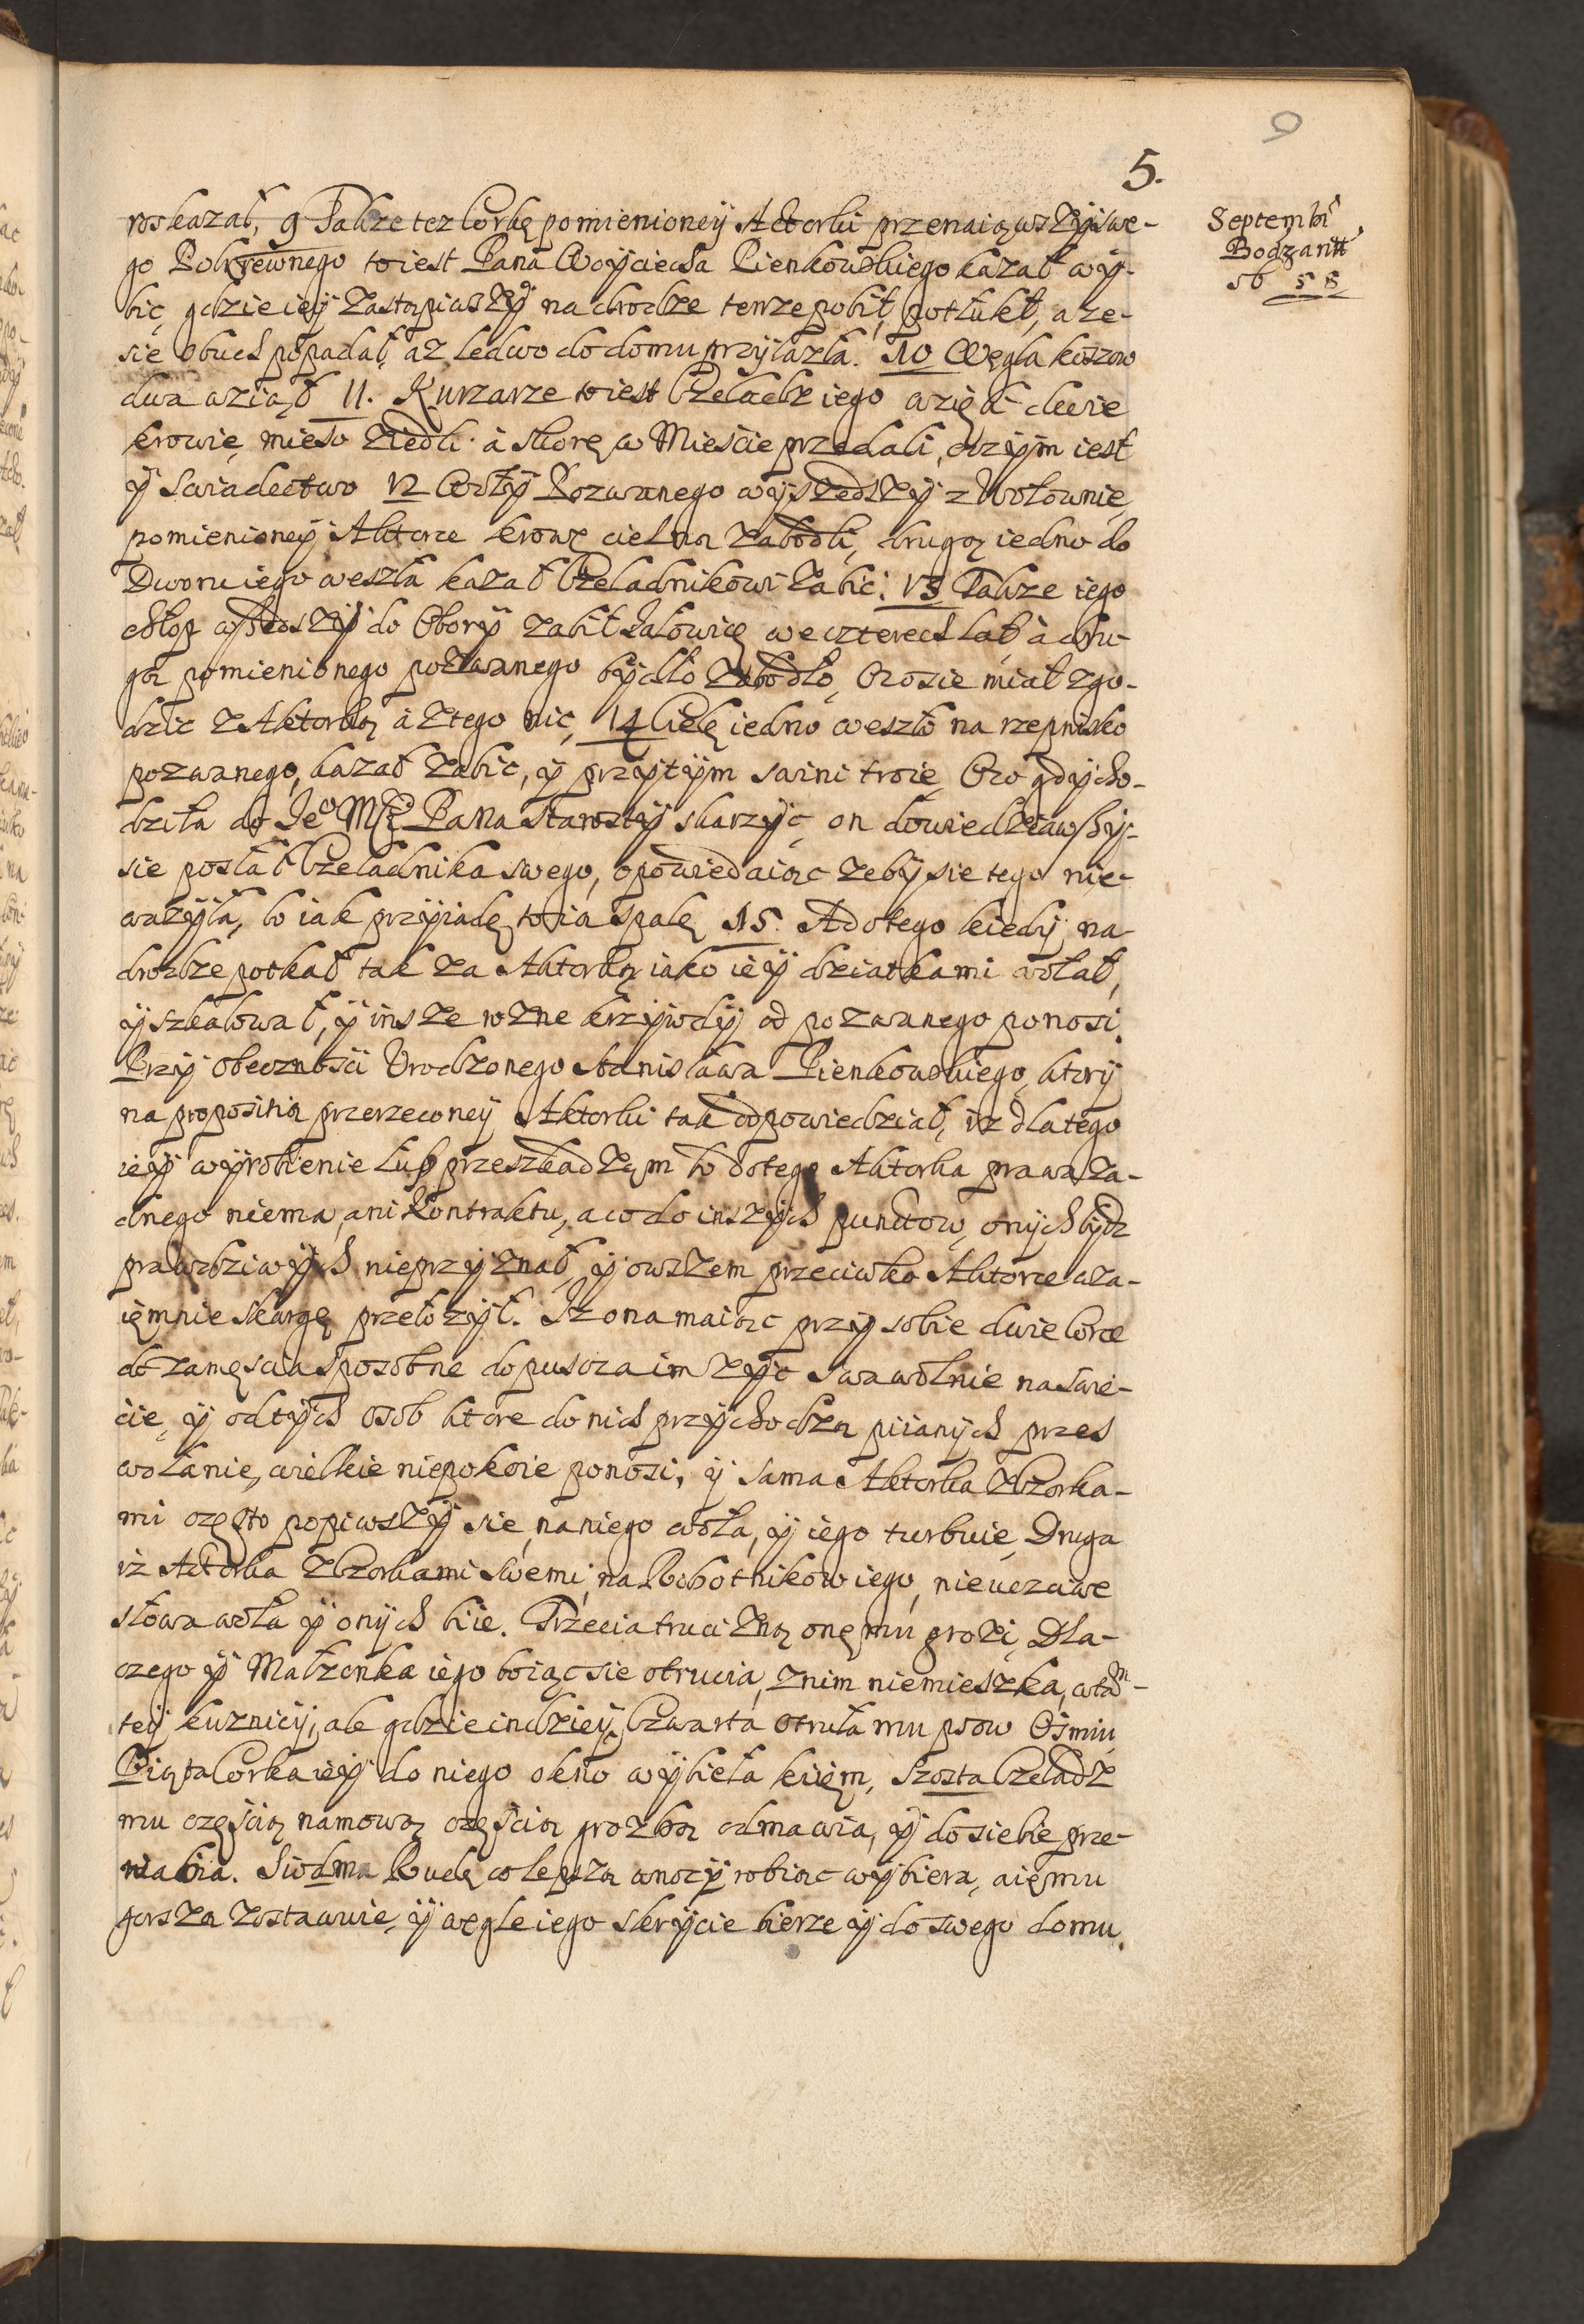 9
5.
Septembr
Bodzantt
56 58
roskazał, 9 Takze tez Corkę pomienioney Actorki przenaiąwszÿ swe-
go Pokrewnego to iest Pana Woÿciecha Pienkowskiego kazał wÿ-
bic, gdzie ieÿ zastąpiwszÿ na drodze tenze pobił, potłukł, a ze-
sie obuch popadał, az ledwo do domu przÿlazła. 10 Węgla koszow
dwa wziął 11. Kurzarze to iest Czeladz iego wzięli dwie
krowie, mieso ziedli à skorę w Miescie przedali, oczÿm iest
ÿ swiadectwo 12 Wołÿ Pozwanego wÿszedszÿ z Wołownie
pomienioneÿ Aktorce krowę cielną zabodli, drugą iedno do
Dworu iego weszła kazał Czeladnikowi zabic. 13 Takze iego
chłop wszedszÿ do Oborÿ zabił Jałowicę we czterech lat, à dru-
gą pomienionego pozwanego bÿdło zabodło, Oco sie miał zgo-
dzic z Aktorką à z tego nic, 14 Cielę iedno weszło na rzepnisko
pozwanego, kazał zabic, ÿ przÿtÿm swini troie, Oco gdÿ cho-
dziła do Jeo Mci Pana Starostÿ skarzÿc, on dowiedziawszÿ-
sie posłał Czeladnika swego, opowiedaiąc zebÿ sie tego nie-
wazÿła, bo iak przÿiadę to ią spalę 15. Ad otego kiedÿ na
drodze potkał tak za Aktorką iako ieÿ dziatkami wołał,
ÿ szkalował, ÿ insze rozne krzÿwdÿ od pozwanego ponosi.
Przÿ obecznosci Urodzonego Stanisława Pienkowskiego, ktorÿ
na propositią przerzeconeÿ Aktorki tak odpowiedział, iz dlatego
ieÿ wÿrobienie Łup przeszkadzam bo dotego Aktorka prawa za-
dnego niema, ani Kontraktu, a co do inszÿch punctow, onÿch bÿdz
prawdziwÿch nieprzÿznał, ÿ owszem przeciwko Aktorce wza-
ięmnie skargę przełozÿł. Iz ona maiąc przÿ sobie dwie Corce
do zamęscia sposobne dopuscza im zÿc swawolnie na swie-
cie, ÿ odtÿch osob ktore do nich przÿchodzą piianÿch przes
wołanie, wielkie niepokoie ponosi, ÿ sama Aktorka z Czorka-
mi często popiwszÿ sie, na niego woła, ÿ iego turbuie, Druga
iz Actorka z Czorkami swemi, na Robotnikow iego, nieuczciwe
słowa woła ÿ onÿch bie. Trzecia trucizną onęmu grozi, Dla-
czego ÿ Małzonka iego boiąc sie otrucia, z nim niemieszka, w tam-
teÿ kuznicÿ, ale gdzieindzieÿ, Czwarta otruła mu psow Osmiu,
Piąta Corka ieÿ do niego okno wÿbieła kiięm, Szosta Czeladz
mu częscią namową częscią grozbą odmawia, ÿ do siebie prze-
wabia. Siodma Rudę co lepszą w nocÿ robiąc wÿbiera, a ięmu
gorszą zostawuie, ÿ węgle iego skrÿcie bierze ÿ do swego domu.